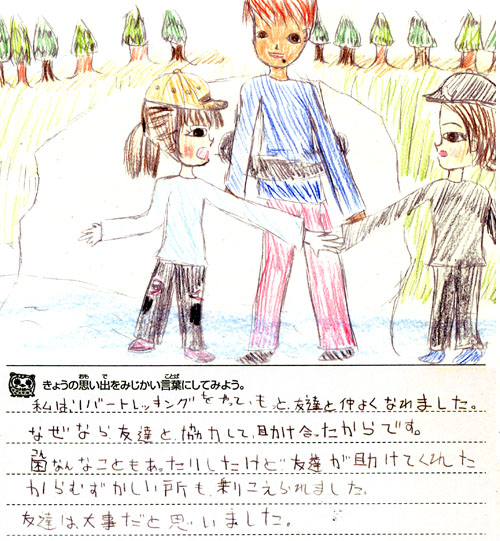 きょうの思い出をみじかい言葉にしてみよう。
私はリバートレッキングをやっていもっと、友達と仲よくなれました。
なぜなら友達と、協力して、助け合ったからです。
困なんなこともあったりしたけど友達が助けてくれた
からむずかしい所も、乗りこえられました。
友達は大事だと思いました。